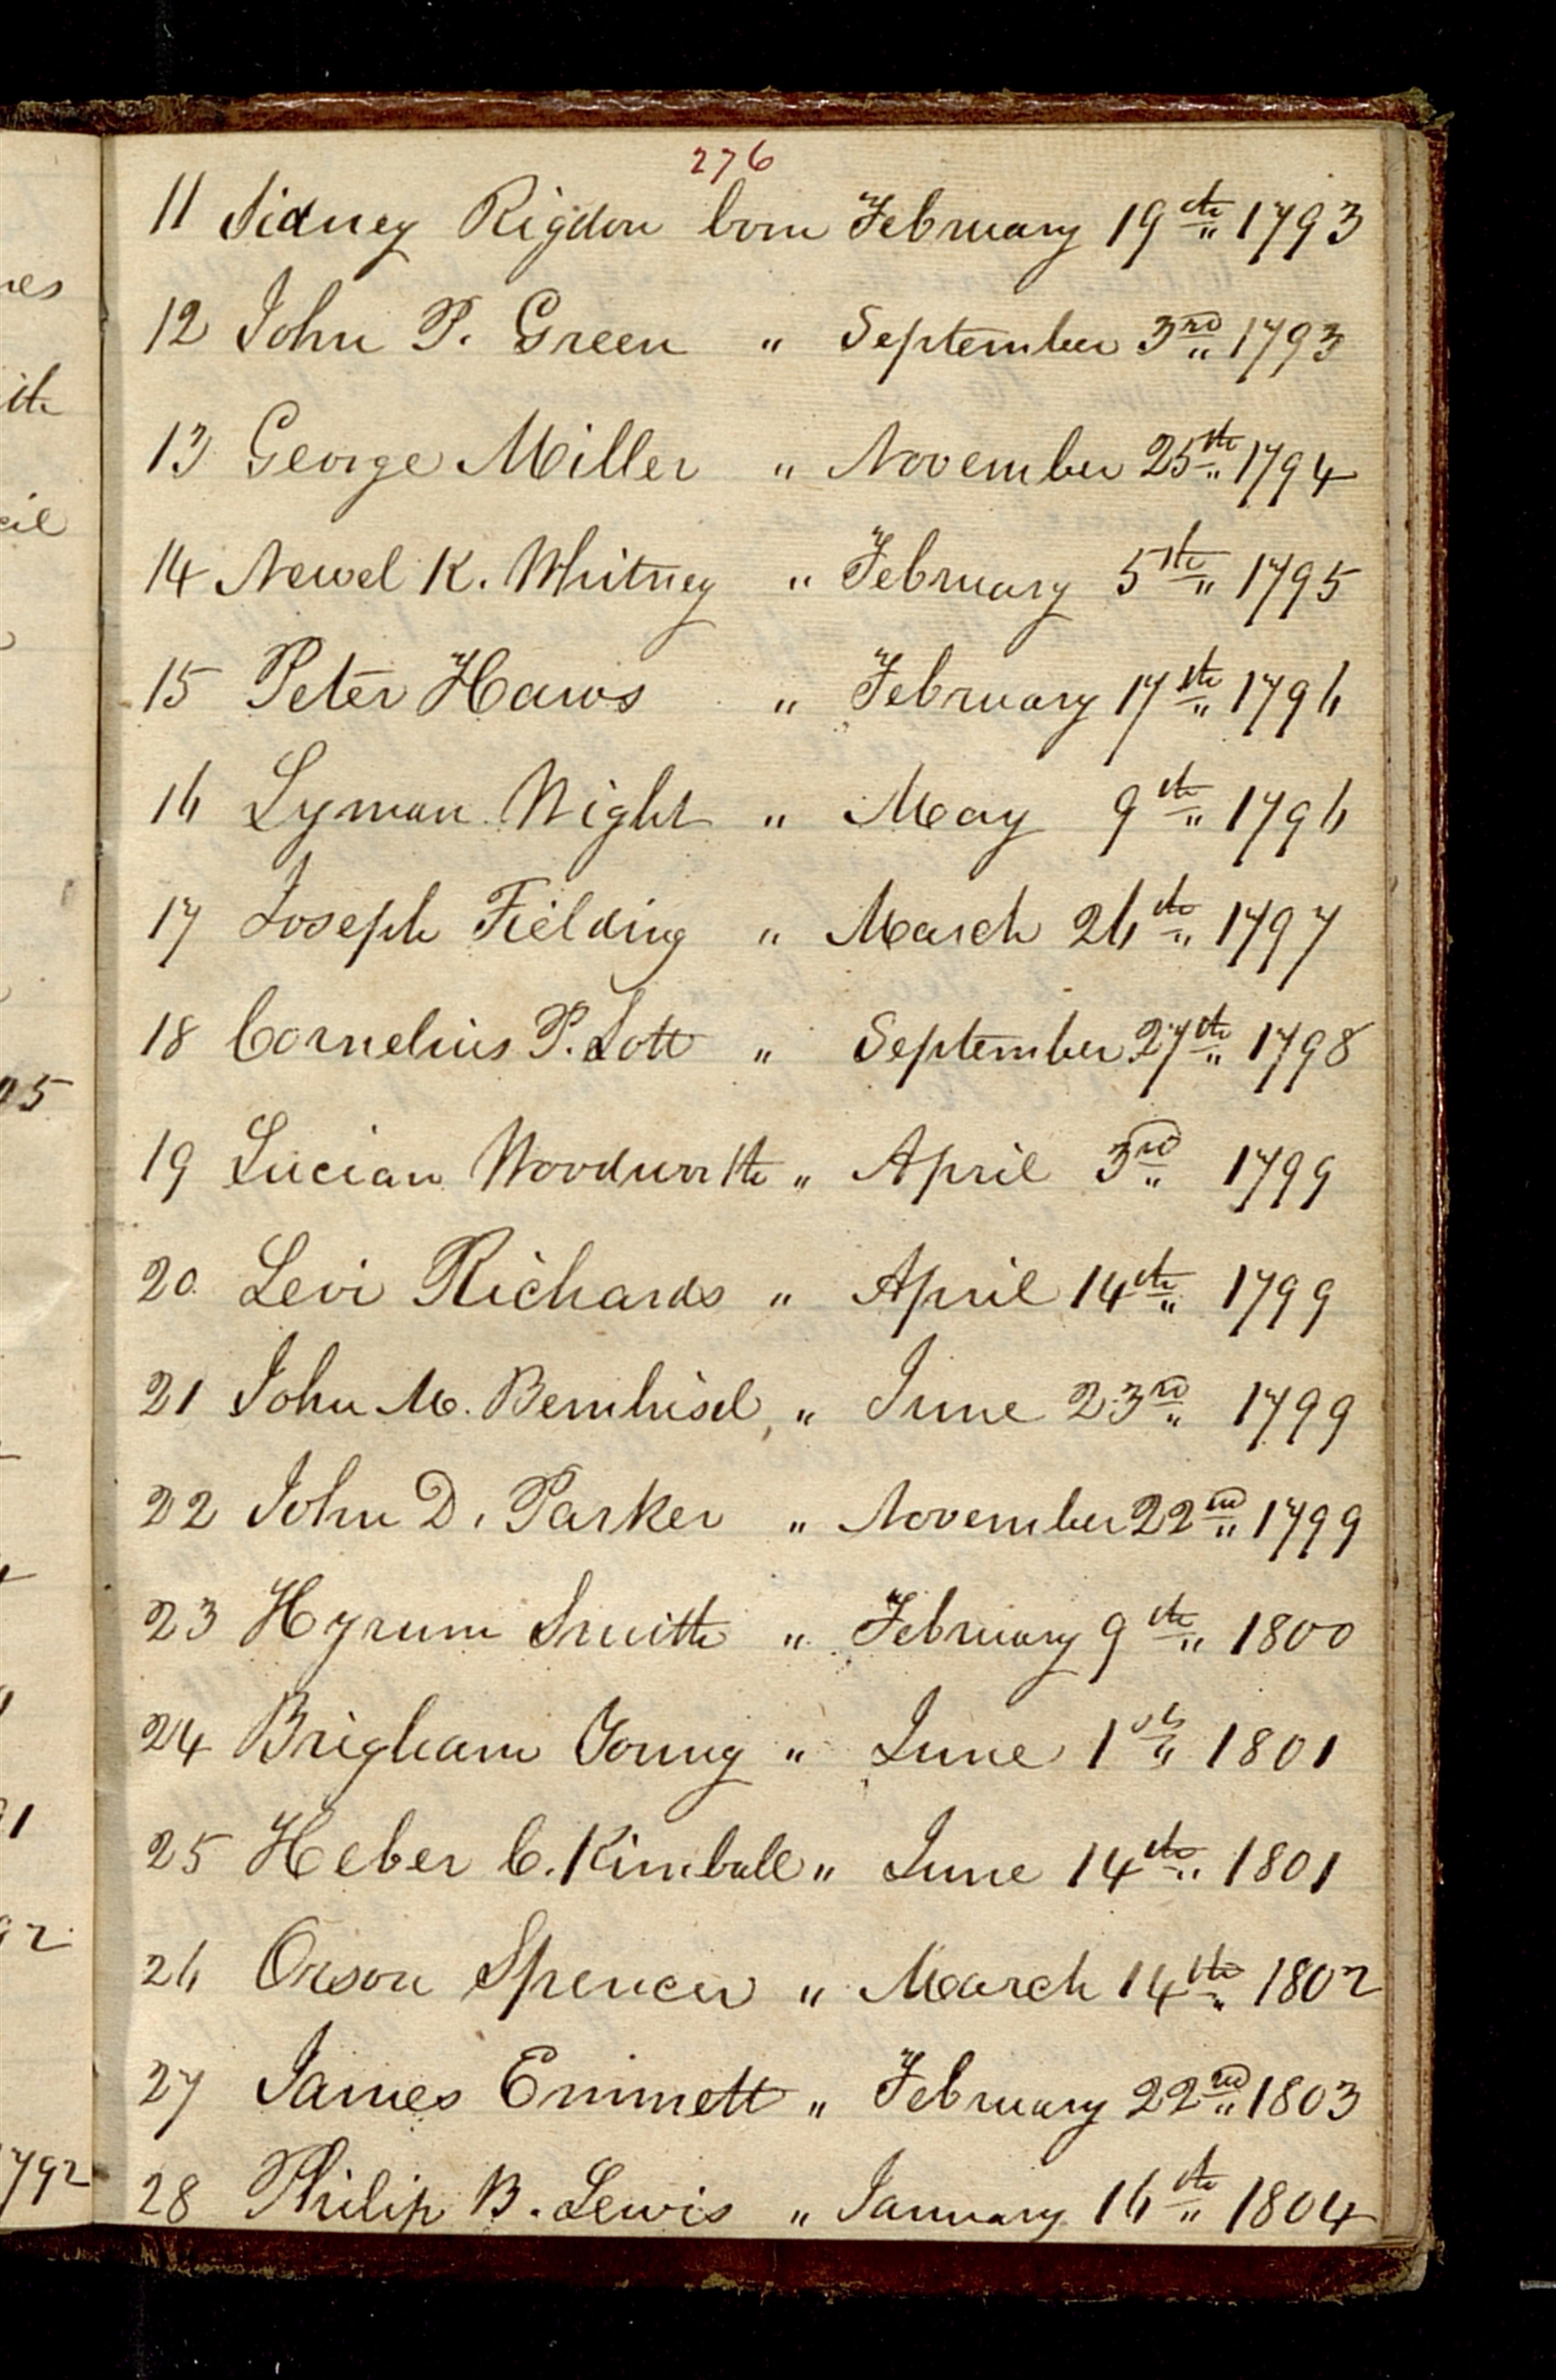 276
11 Sidney Rigdon born February 19th 1793
12 John P. Green " September 3rd 1793
13 George Miller " November 25th 1794
14 Newel K. Whitney " February 5th 1795
15 Peter Haws " February 17th 1796
16 Lyman Wight " May 9th 1796
17 Joseph Fielding " March 26th 1797
18 Cornelius P. Lott " September 27th 1798
19 Lucian Woodworth " April 3rd 1799
20 Levi Richards " April 14th 1799
21 John M. Bernhisel, " June 23rd 1799
22 John D. Parker " November 22nd 1799
23 Hyrum Smith " February 9th 1800
24 Brigham Young " June 1st 1801
25 Heber C. Kimball " June 14th 1801
26 Orson Spencer " March 14th 1802
27 James Emmett " February 22nd 1803
28 Philip B. Lewis " January 16th 1804